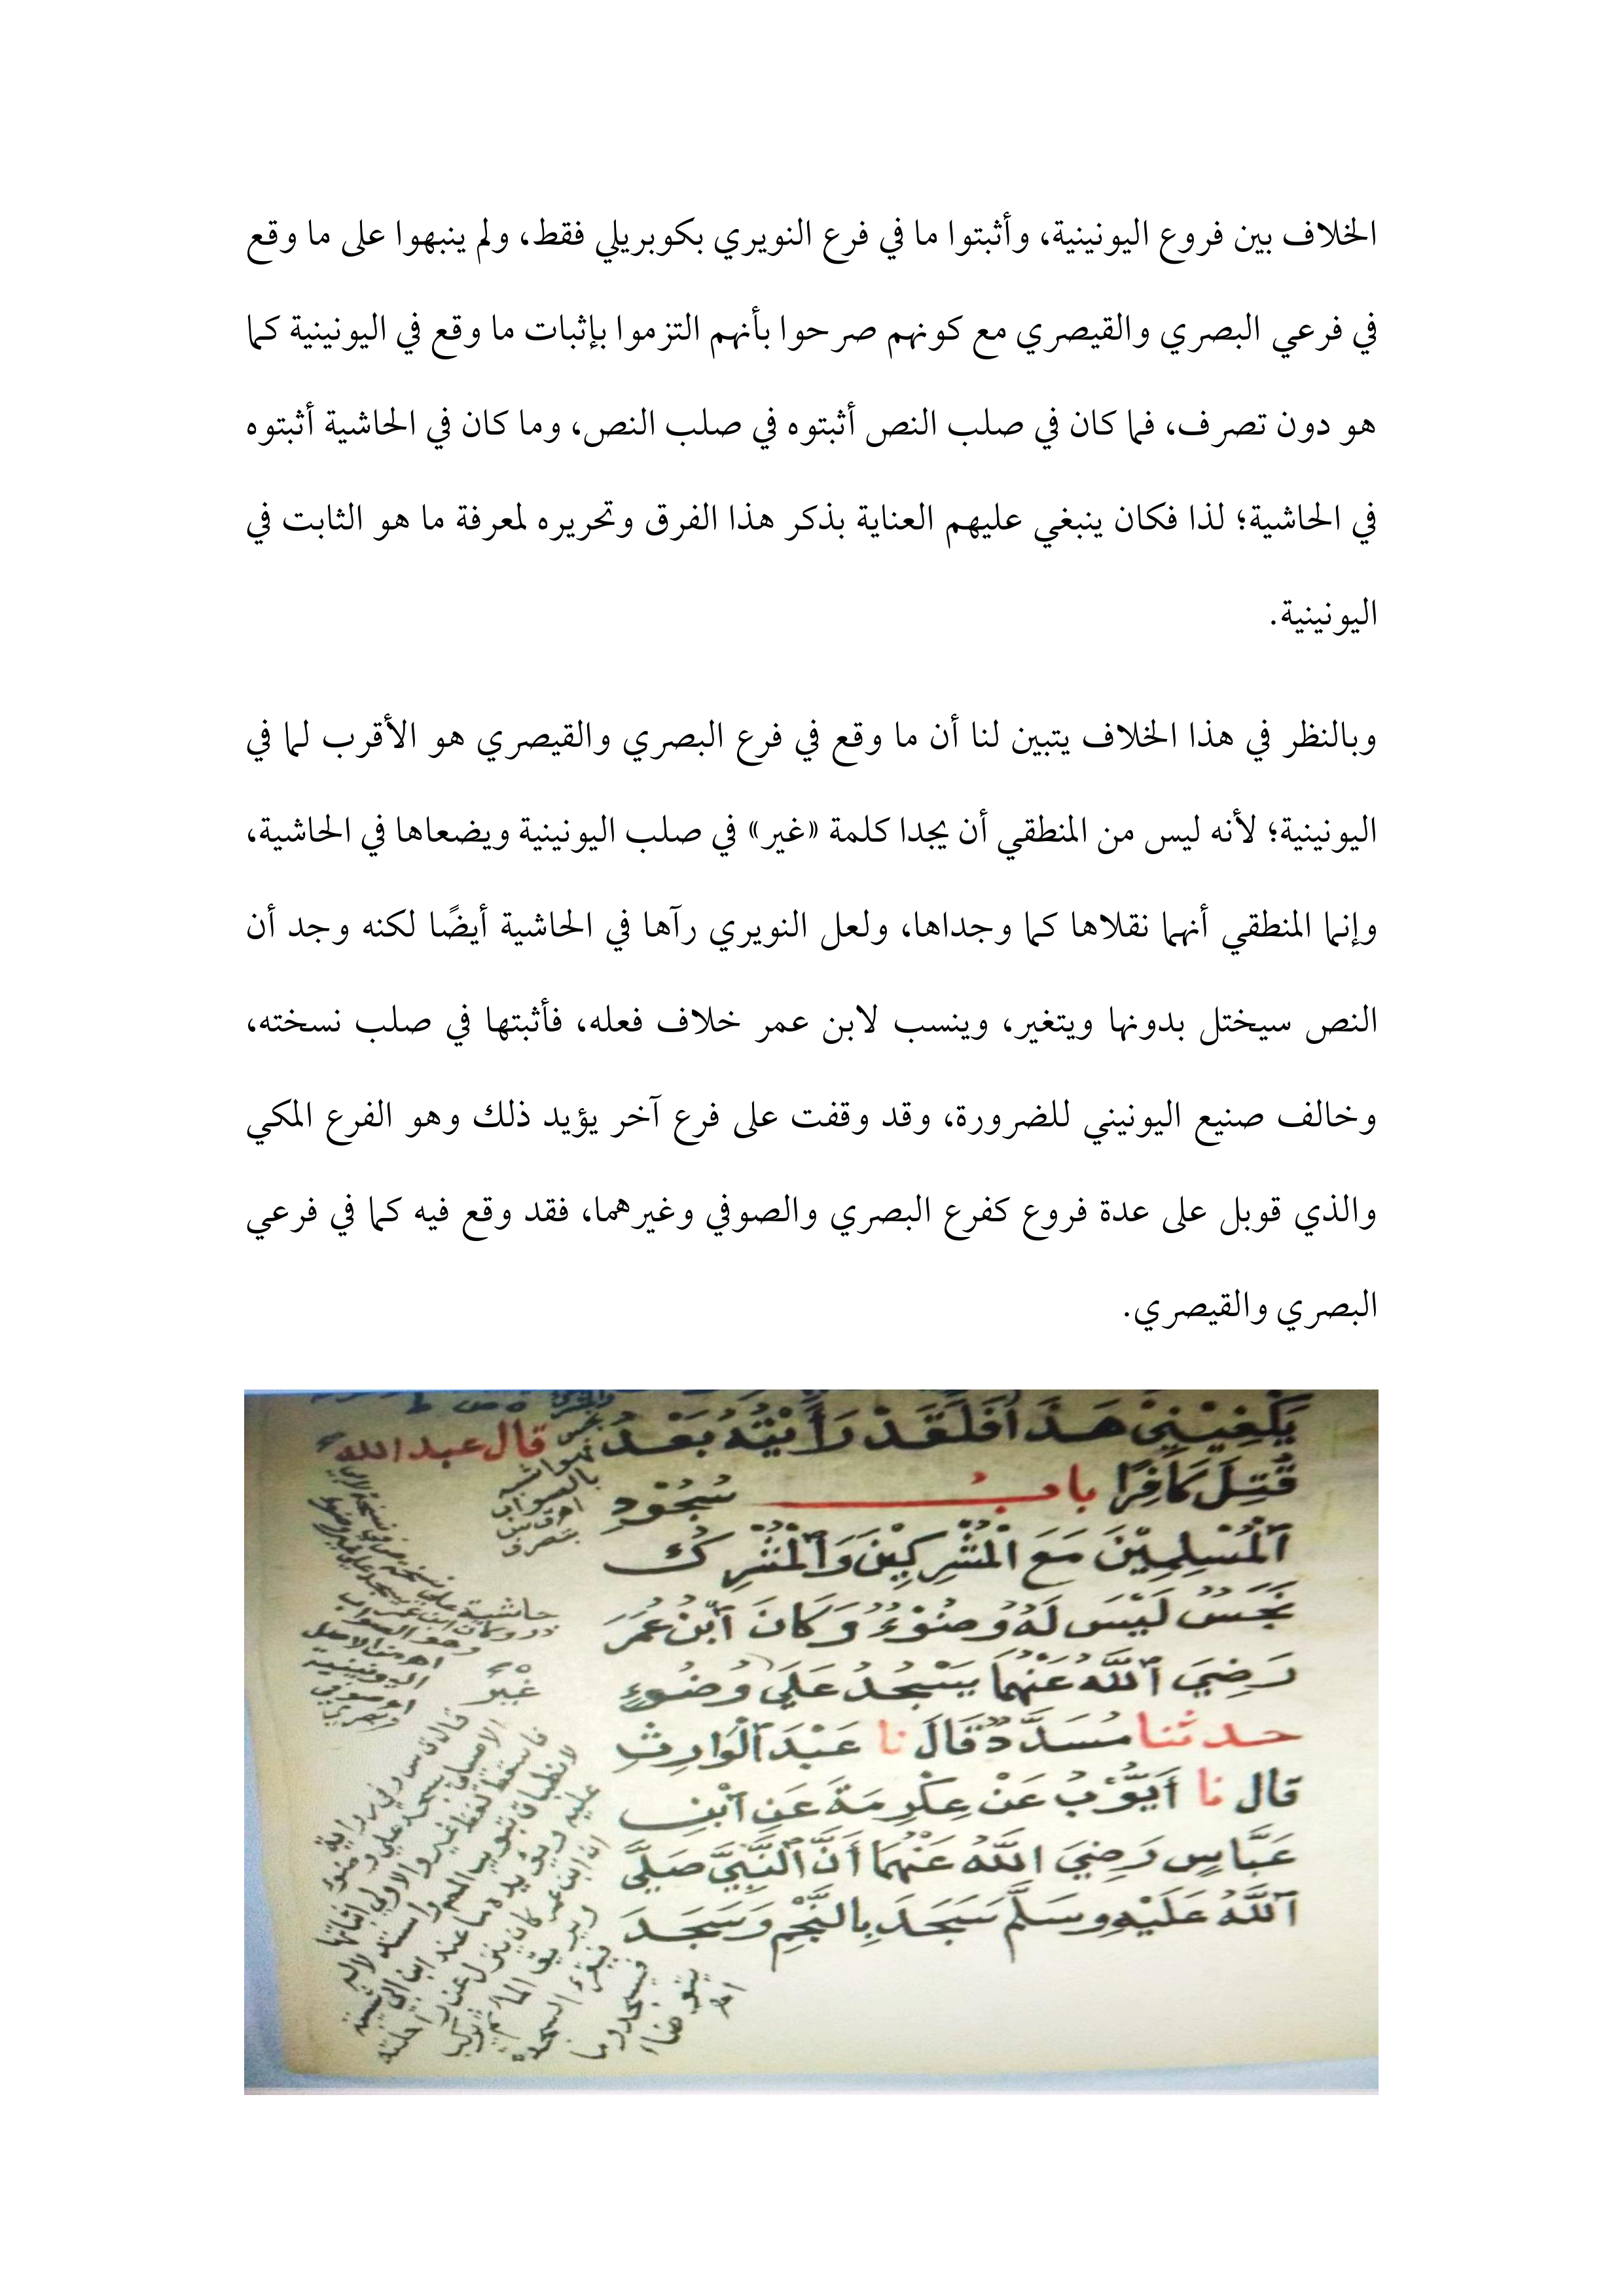 الخلاف بين فروع اليونينية، وأثبتوا ما في فرع النويري بكوبريلي فقط، ولم ينبهوا على ما وقع
في فرعي البصري والقيصري مع كونهم صرحوا بأنهم التزموا بإثبات ما وقع في اليونينية كما
هو دون تصرف، فما كان في صلب النص أثبتوه في صلب النص، وما كان في الحاشية أثبتوه
في الحاشية؛ لذا فكان ينبغي عليهم العناية بذكر هذا الفرق وتحريره لمعرفة ما هو الثابت في
اليونينية.
وبالنظر في هذا الخلاف يتبين لنا أن ما وقع في فرع البصري والقيصري هو الأقرب لما في
اليونينية؛ لأنه ليس من المنطقي أن يجدا كلمة «غير» في صلب اليونينية ويضعاها في الحاشية،
وإنما المنطقي أنهما نقلاها كما وجداها، ولعل النويري رآها في الحاشية أيضًا لكنه وجد أن
النص سيختل بدونها ويتغير، وينسب لابن عمر خلاف فعله، فأثبتها في صلب نسخته،
وخالف صنيع اليونيني للضرورة، وقد وقفت على فرع آخر يؤيد ذلك وهو الفرع المكي
والذي قوبل على عدة فروع كفرع البصري والصوفي وغيرهما، فقد وقع فيه كما في فرعي
البصري والقيصري.
يَكْفِيْنِيْ هَذَا فَلَقَدْ رَأَيْتُهُ بَعْدُ قال عبد الله
قُتِلَ كَافِرًا باب سُجُوْدِ
ٱلْمُسْلِمِيْنَ مَعَ الْمُشْرِكِيْنَ وَٱلْمُشْرِكُ
نَجَسٌ لَيْسَ لَهُ وُضُوْءٌ وَكَانَ ٱبْنُ عُمَرَ
رَضِيَ ٱللهُ عَنْهُمَا يَسْجُدُ عَلَى وُضُوءٍ
غَيْرِ
حدثنا مُسَدَّدٌ قَالَ نا عَبْدُ ٱلْوَارِثِ
قال نا أَيُّوْبُ عَنْ عِكْرِمَةَ عَنِ ٱبْنِ
عَبَّاسٍ رَضِيَ اللهُ عَنْهُمَا أَنَّ ٱلنَّبِيَّ صَلَّى
ٱللهُ عَلَيْهِ وَسَلَّمَ سَجَدَ بِالنَّجْمِ وَسَجَدَ